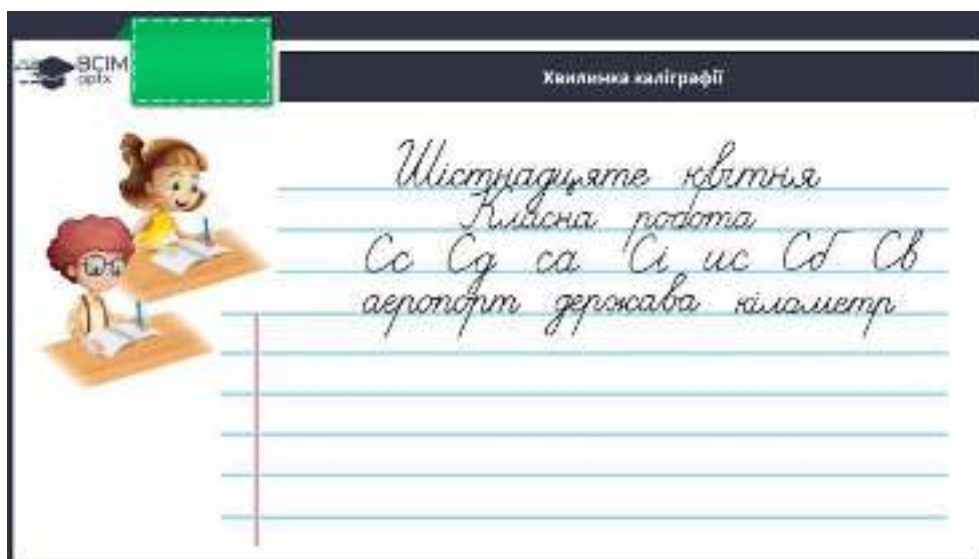 ВСІМ
освіта
Хвилинка каліграфії
Шістнадцяте квітня
Класна робота
Сс Сд са Сі ис Сб Св
аеропорт держава кілометр